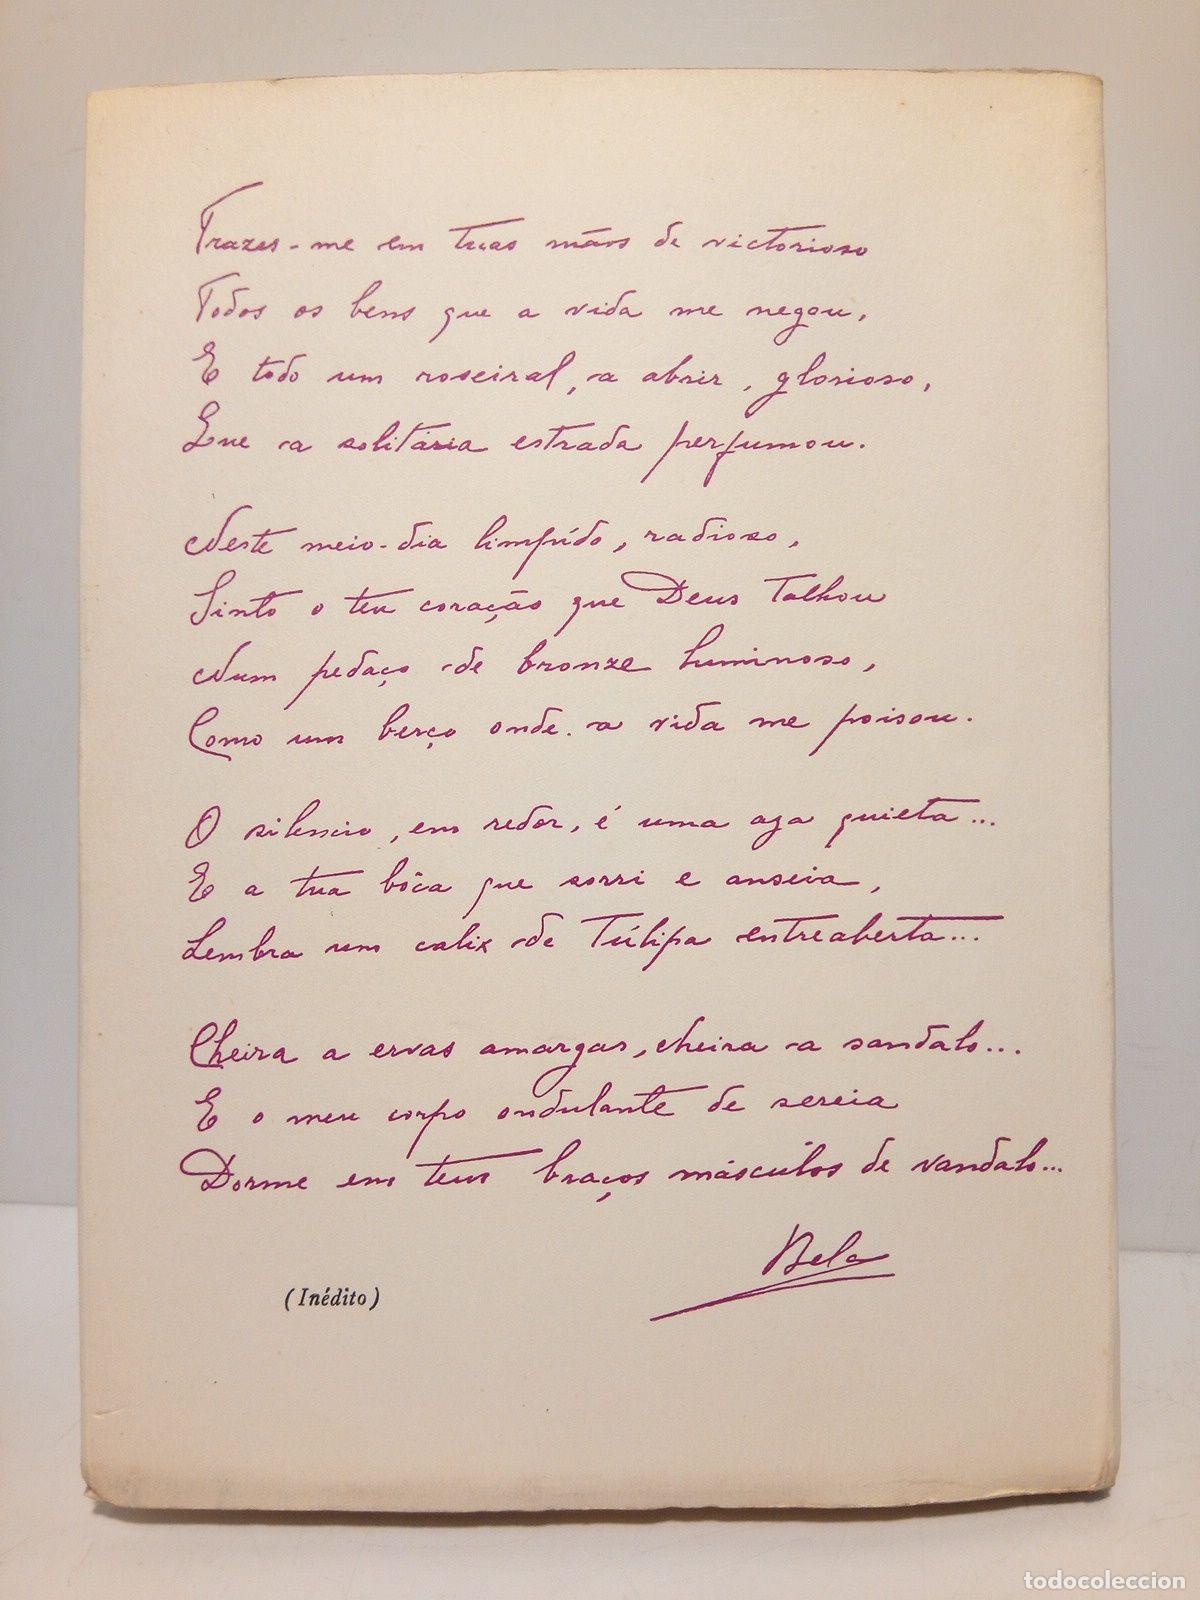 Trazes-me em tuas mãos de victorioso
Todos os bens que a vida me negou,
E todo um roseiral, a abrir, glorioso,
Que a solitária estrada perfumou.
Neste meio-dia limpído, radioso,
Sinto o teu coração que Deus talhou
Num pedaço de bronze luminoso,
Como um berço onde a vida me poisou.
O silencio, em redor, é uma aza quieta...
E a tua bôca que sorri e anseia,
Lembra um calix de túlipa entreaberta...
Cheira a ervas amargas, cheira a sandalo...
E o meu corpo ondulante de sereia
Dorme em teus braços másculos de vandalo...
Bela
(Inédito)
todocoleccion